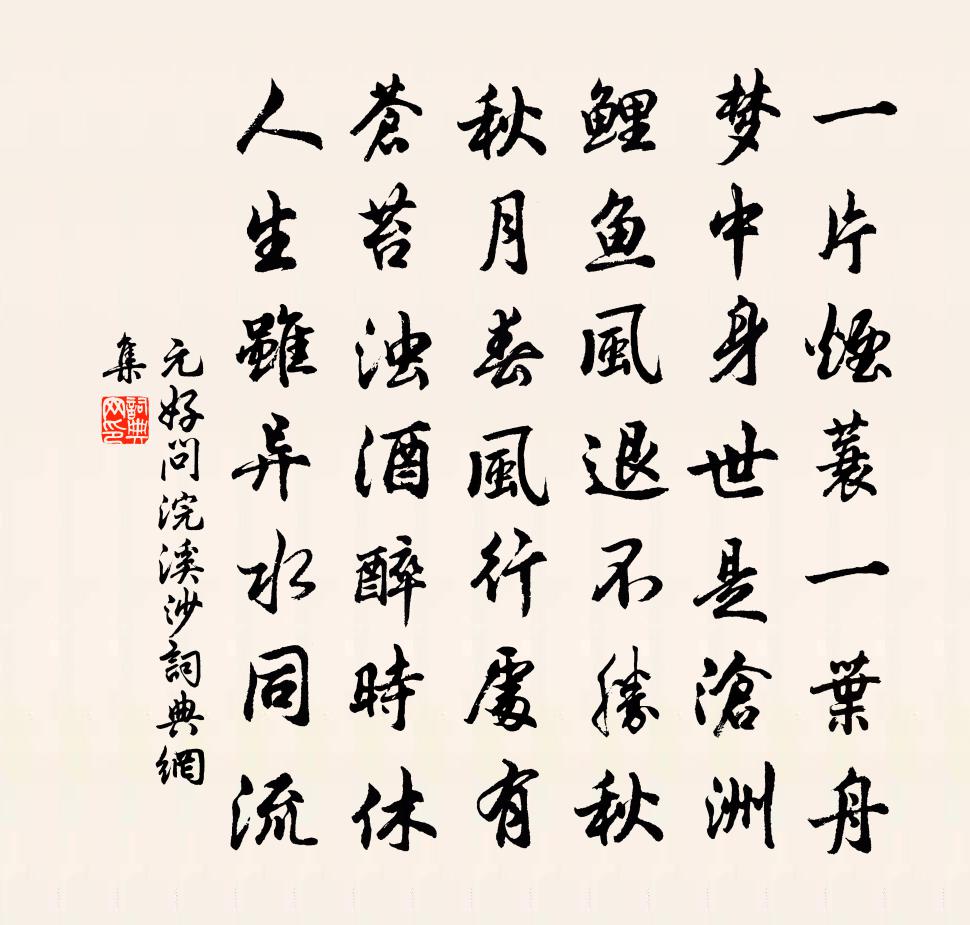 一片煙蓑一葉舟
梦中身世是滄洲
鲤鱼風退不勝秋
秋月春風行處有
蒼苔浊酒醉時休
人生雖异水同流
元好問浣溪沙詞典網
集
詞典
网印